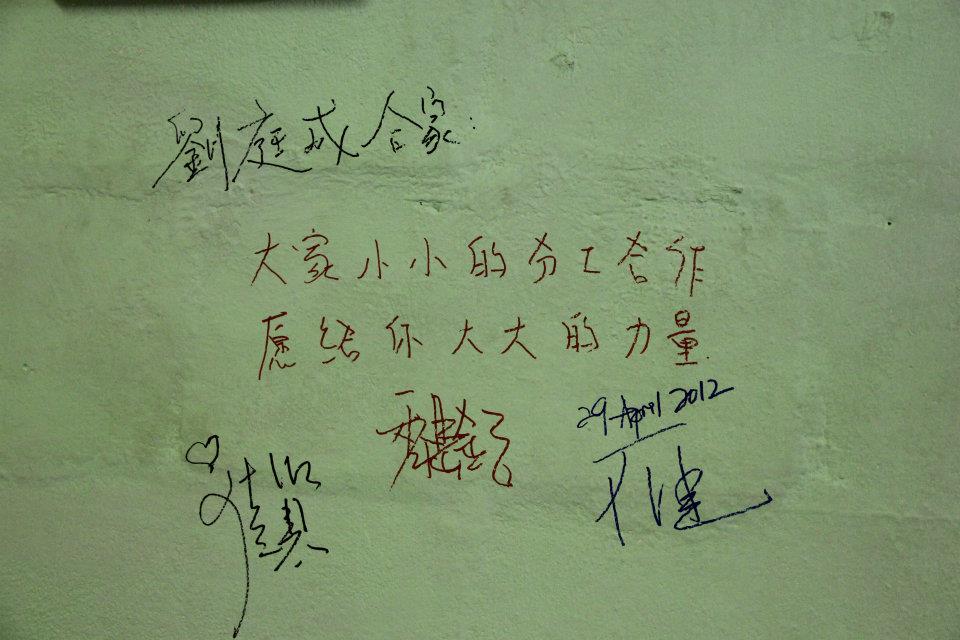 劉庭成合家:
大家小小的分工合作
愿给你大大的力量.
29 April 2012